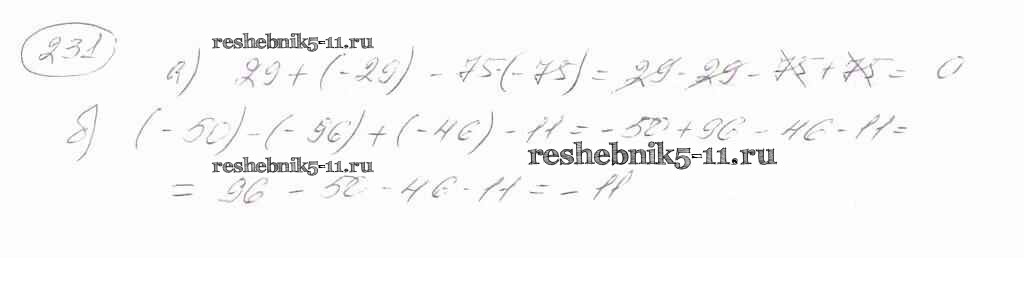 231
reshebnik5-11.ru
а) 29 + (-29) - 75 - (-75) = 29 - 29 - 75 + 75 = 0
б) (-50) - (-96) + (-46) - 11 = -50 + 96 - 46 - 11 =
reshebnik5-11.ru
reshebnik5-11.ru
= 96 - 50 - 46 - 11 = -11